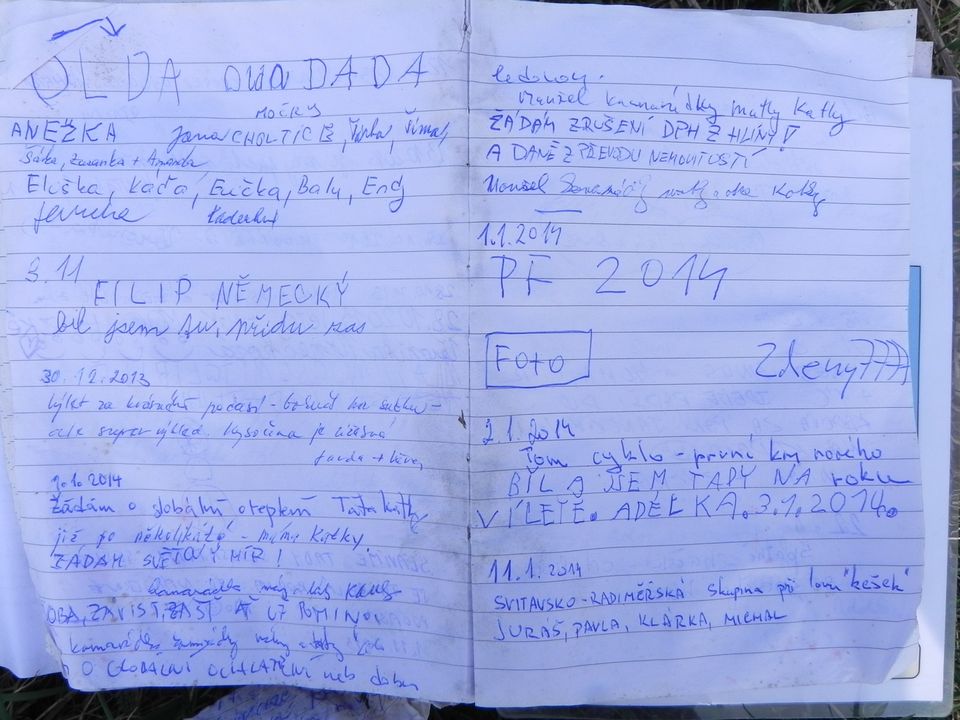 OLDA DADA
MOČRY
ANEŽKA Jana CHOLTICE, Šárka,
Šárka, Zuzanka + Amanda
Eliška, Káča, Evička, Baly, Endy
3.11
FILIP NĚMECKÝ
bil jsem tu, přidu zas
30.12.2013
výlet za krásného počasí -
ale super výhled. Vysočina je úžasná
1.1.2014
Žádám o globální oteplení Táta Katky
již po několikáté - máma Katky
ŽÁDÁM SVĚTOVÝ MÍR!
kamarádka
ZÁVIST, ZÁŠŤ AŤ UŽ POMINOU
O GLOBÁLNÍ OCHLAZENÍ neb dobu
ledovou.
manžel kamarádky matky Katky
ŽÁDÁM ZRUŠENÍ DPH Z HLÍNY
A DANĚ Z PŘEVODU NEMOVITOSTÍ!
Manžel Katky
1.1.2014
PF 2014
FOTO
Zdeny7777
2.1.2014
Tom cyklo - první km nového
roku
BÍLA JSEM TADY NA
VÍLETĚ. ADÉLKA. 3.1.2014.
11.1.2014
SVITAVSKO-RADIMĚŘSKÁ skupina při lovu "kešek"
JURÁŠ, PAVLA, KLÁRKA, MICHAL